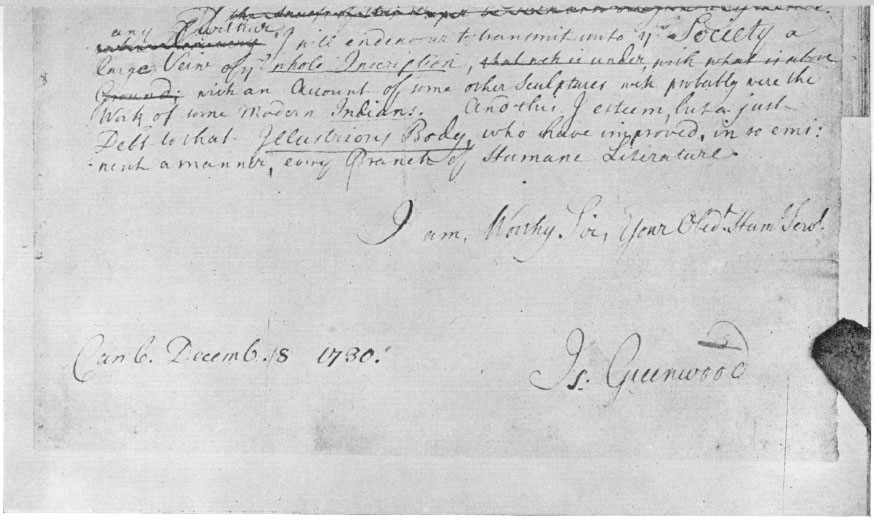 any Further, I will endeavour to transmit unto yͤ Society a
large View of yͤ whole Inscription, that wch is under, with what is above
Ground; with an Account of some other Sculptures wch probably were the
Work of some Modern Indians. And this I esteem, but a just
Debt to that Illustrious Body, who have improved, in so emi:
nent a manner, every Branch of Humane Literature.
I am, Worthy Sir, Your Obedt. Hum. Servt.
Camb. Decemb. 8 1730.
Is. Greenwood